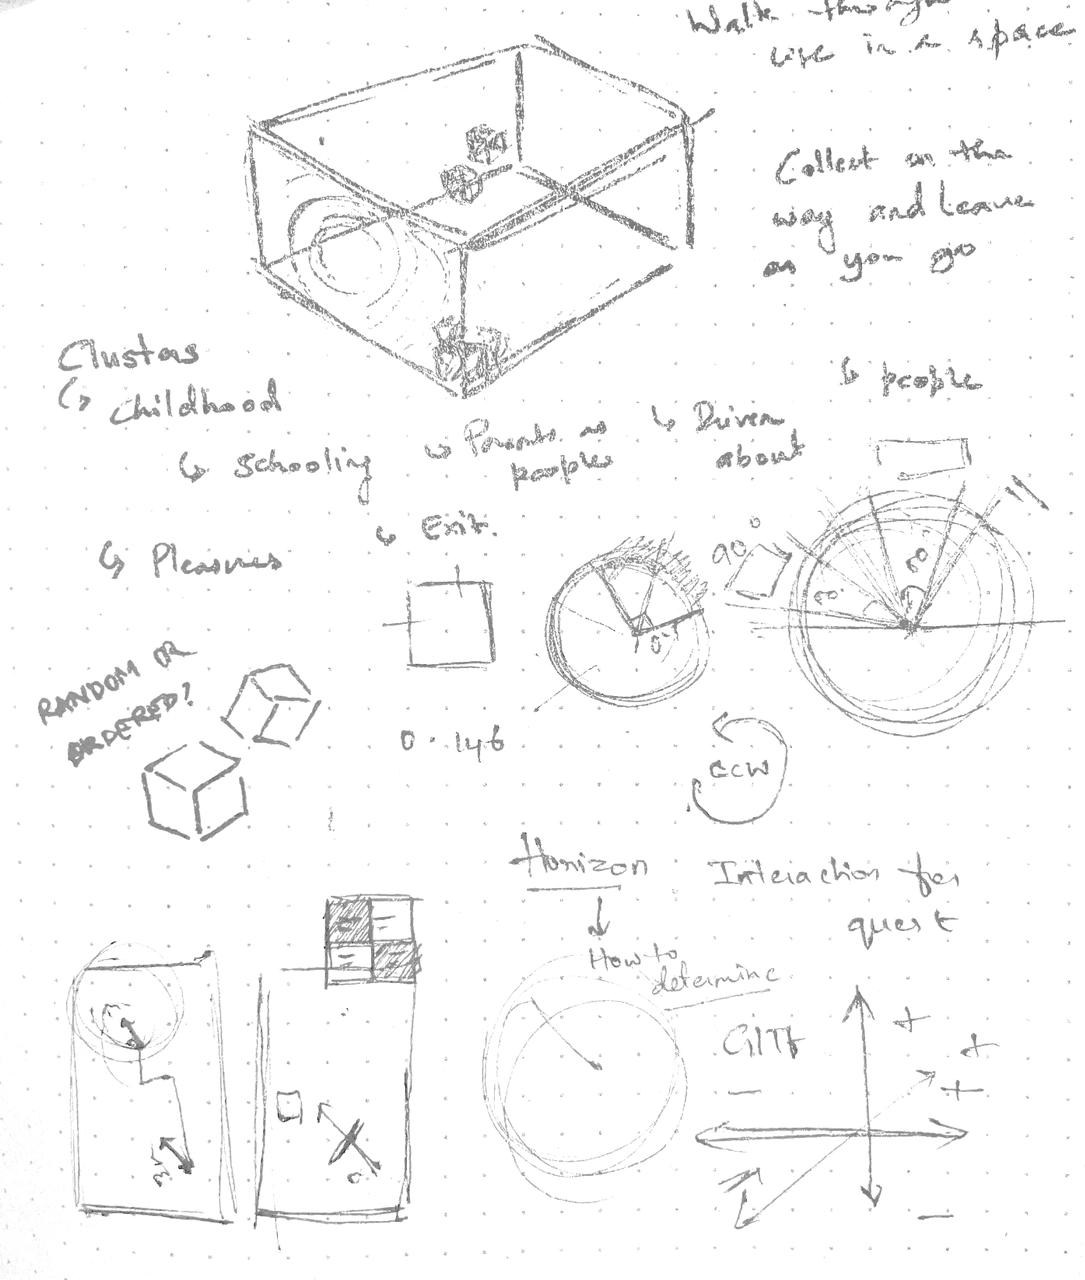 Walk through
life in a space
Collect on the
way and leave
as you go
Clusters
↳ Childhood
↳ Schooling
↳ Parents as
people
↳ Driven
about
↳ people
↳ Pleasures
↳ Exit.
90°
RANDOM OR
ORDERED?
0.146
CCW
Horizon
↓
How to
determine
Interaction for
quest
+
+
+
-
-